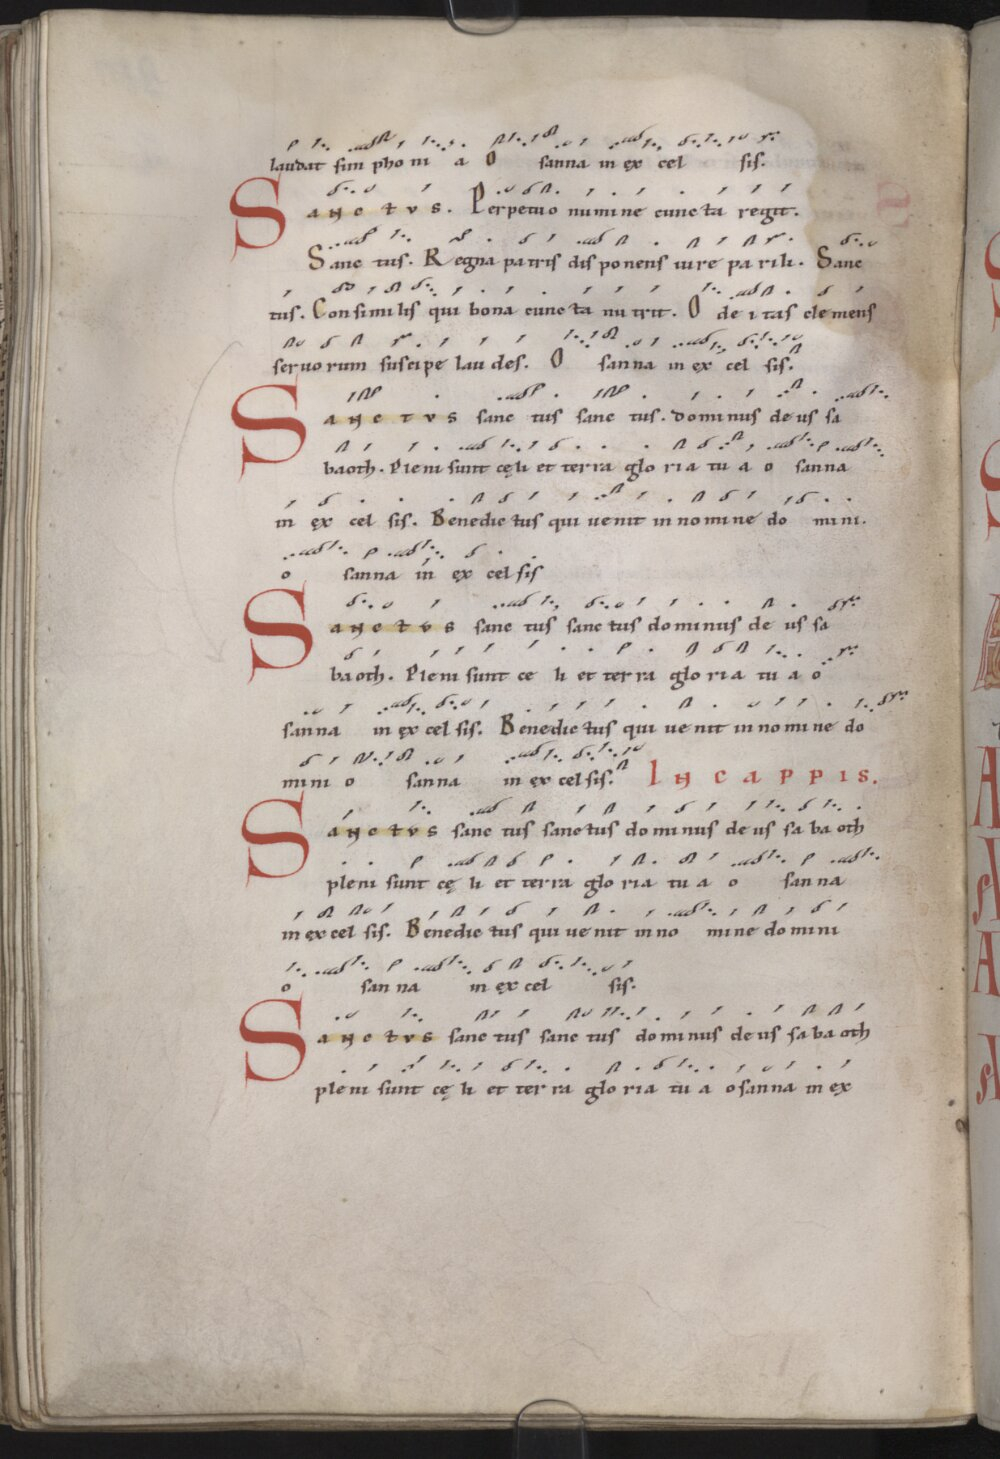 laudat sim pho ni a O sanna in ex cel sis.
SANCTVS. Perpetuo numine cuncta regit.
Sanc tus. Regna patris disponens iure pa rili. Sanc
tus. Consimilis qui bona cuncta nutrit. O deitas clemens
seruorum suscipe laudes. O sanna in ex cel sis.
SANCTVS sanc tus sanc tus. dominus deus sa
baoth. Pleni sunt cęli et terra glo ria tu a o sanna
in ex cel sis. Benedic tus qui uenit in nomine do mini.
o sanna in ex cel sis
SANCTVS sanc tus sanc tus dominus de us sa
baoth. Pleni sunt ce li et terra glo ria tu a o
sanna in ex cel sis. Benedic tus qui ue nit in nomine do
mini o sanna in ex cel sis. IN CAPPIS.
SANCTVS sanc tus sanctus dominus deus sa ba oth
pleni sunt cę li et terra glo ria tu a o san na
in ex cel sis. Benedic tus qui ue nit in no mine domini
o san na in ex cel sis.
SANCTVS sanc tus sanc tus dominus deus sa ba oth
pleni sunt cę li et ter ra glo ria tu a osanna in ex